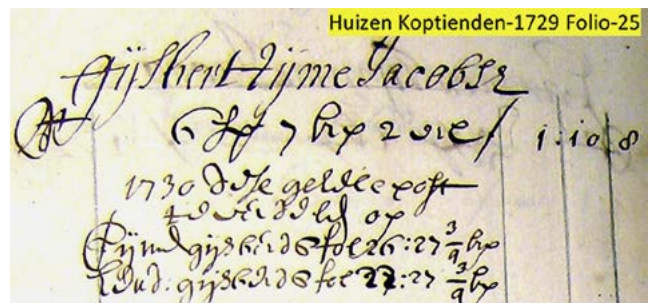 Huizen Koptienden-1729 Folio-25
Gijsbert Tijme Jacobsz
6 sp 7 brp 2 vie / 1:10 8
1730 dese geheele post
op
Tijmen gijsberds fol 26:27 3/9 brp
gijsberds fol 27:27 3/9 brp